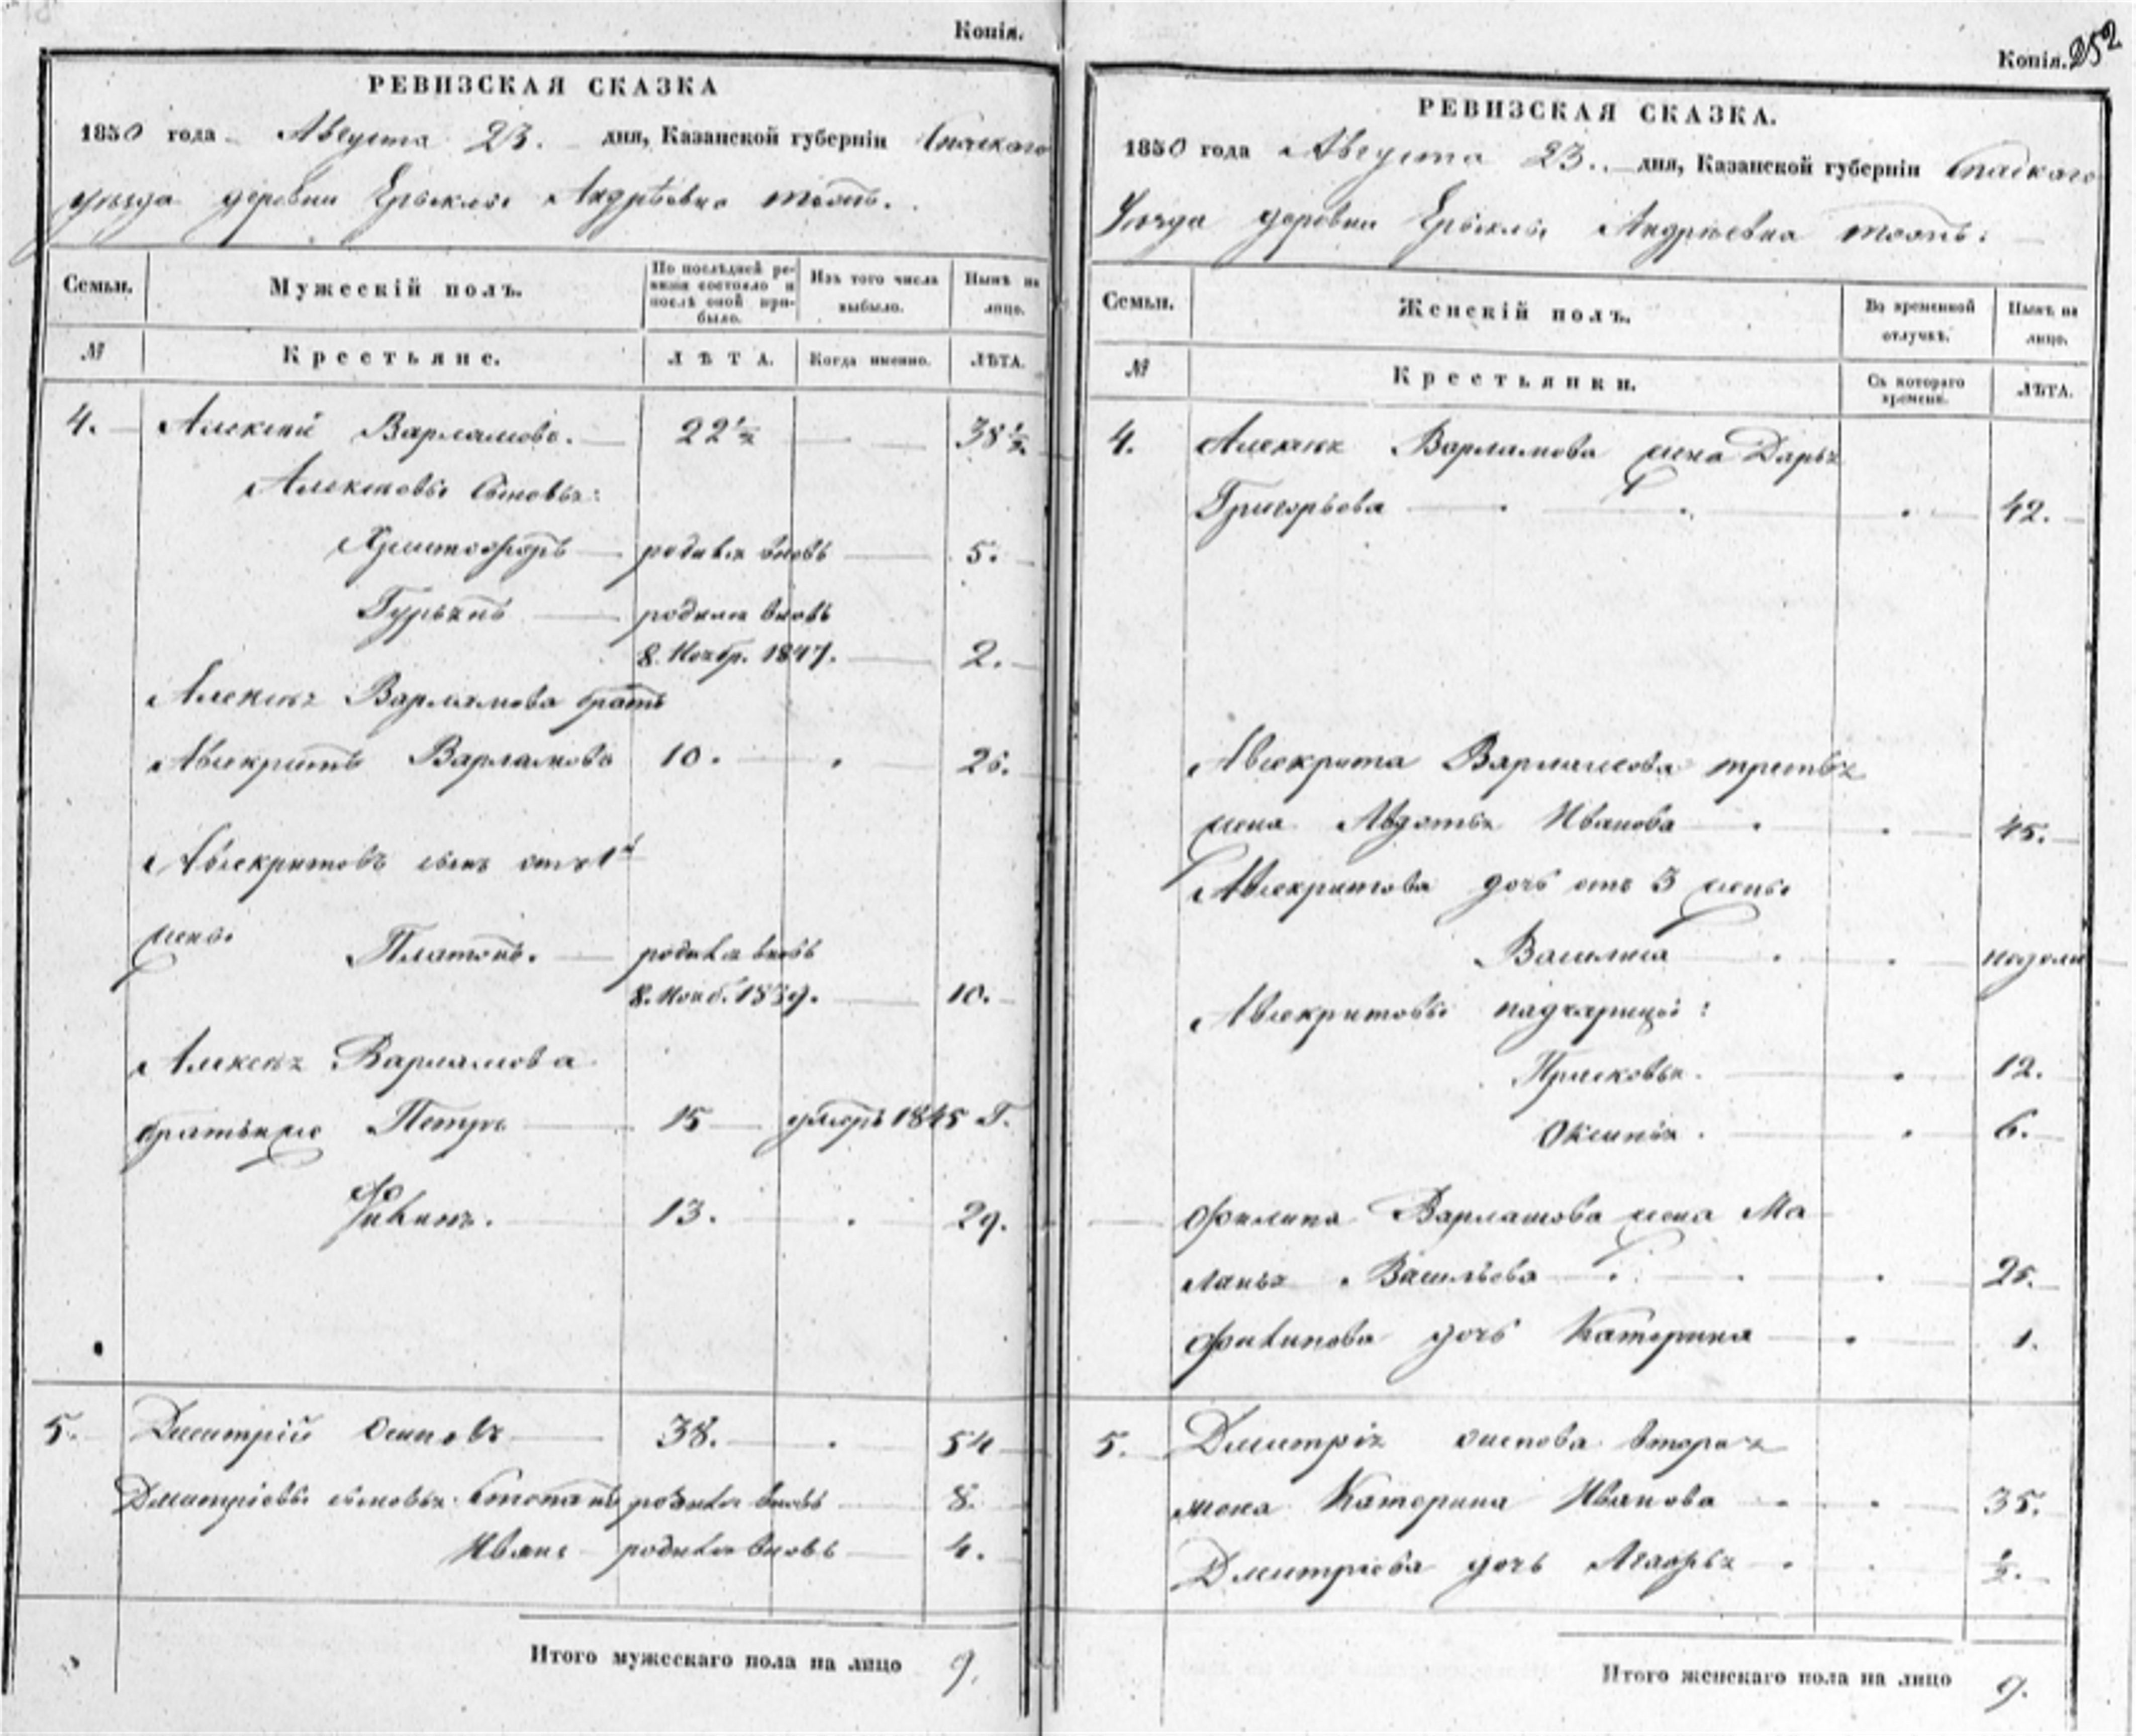 Копія.
РЕВИЗСКАЯ СКАЗКА
1850 года Августа 23. дня, Казанской губерніи Спаскаго
уѣзда деревни Ерыклы Андрѣевка тожъ.
Семьи.
Мужескій полъ.
По послѣдней ревизіи состояло и послѣ оной прибыло.
Изъ того числа выбыло.
Нынѣ на лицо.
№
Крестьяне.
ЛѢТА.
Когда именно.
ЛѢТА.
4. Алексѣй Варламовъ. 22½ 38½
Алексѣовы сыновья:
Христофоръ родился вновь 5.
Гурьянъ родился вновь
8. Ноябр. 1847. 2.
Алексѣя Варламова братъ
Авскритъ Варламовъ 10. 26.
Авскритовъ сынъ отъ 1й
жены Платонъ. родился вновь
8. Нояб. 1839. 10.
Алексѣя Варламова
братья же Петръ 15 умеръ 1845 Г.
Филипъ. 13. 29.
5. Дмитрій Осиповъ 38. 54
Дмитріевы сыновья: Степанъ родился вновь 8.
Иванъ родился вновь 4.
Итого мужескаго пола на лицо 9.
Копія. 252
РЕВИЗСКАЯ СКАЗКА.
1850 года Августа 23. дня, Казанской губерніи Спаскаго
Уѣзда деревни Ерыклы Андрѣевка тожъ.
Семьи.
Женскій полъ.
Во временной отлучкѣ.
Нынѣ на лицо.
№
Крестьянки.
Съ котораго времени.
ЛѢТА.
4. Алексѣя Варламова жена Дарья
Григорьева 42.
Авскрита Варламова третья
жена Авдотья Иванова 45.
Авскритова дочь отъ 3 жены
Василиса недели
Авскритовы падчерицы:
Прасковья. 12.
Оксинья. 6.
Филипа Варламова жена Ма
ланья Васильева 25.
Филипова дочь Катерина 1.
5. Дмитрія Осипова вторая
жена Катерина Иванова 35.
Дмитріева дочь Агафья ½.
Итого женскаго пола на лицо 9.